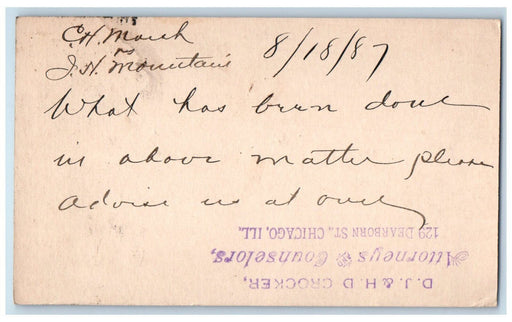 C.H. Marsh
vs
J.H. Mountain
8/18/87
What has been done
in above matter please
advise us at once
D.J. & H.D CROCKER,
Attorneys & Counselors,
129 DEARBORN ST., CHICAGO, ILL,